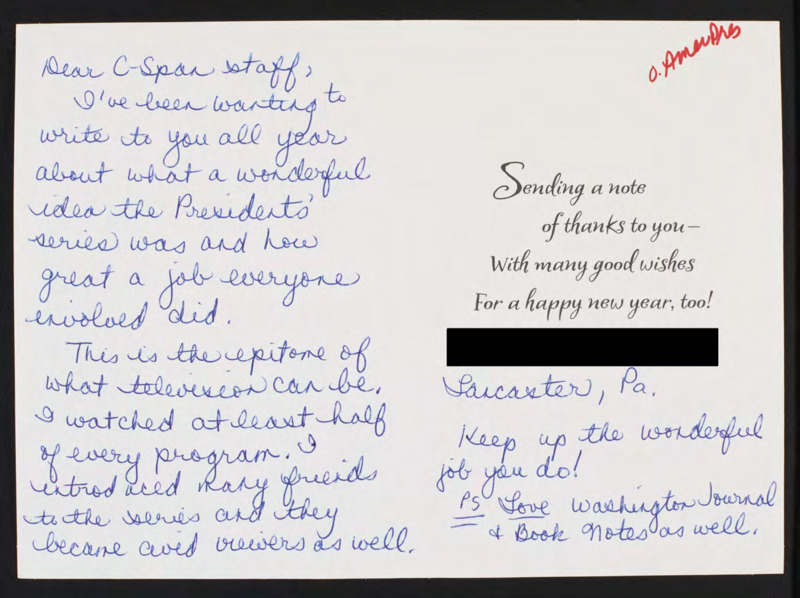 Dear C-Span staff,
I've been wanting to
write to you all year
about what a wonderful
idea the Presidents'
series was and how
great a job everyone
involved did.
This is the epitome of
what television can be.
I watched at least half
of every program. I
introduced many friends
to the series and they
became avid viewers as well.
Sending a note
of thanks to you—
With many good wishes
For a happy new year, too!
Lancaster, Pa.
Keep up the wonderful
job you do!
PS Love Washington Journal
& Book Notes as well.